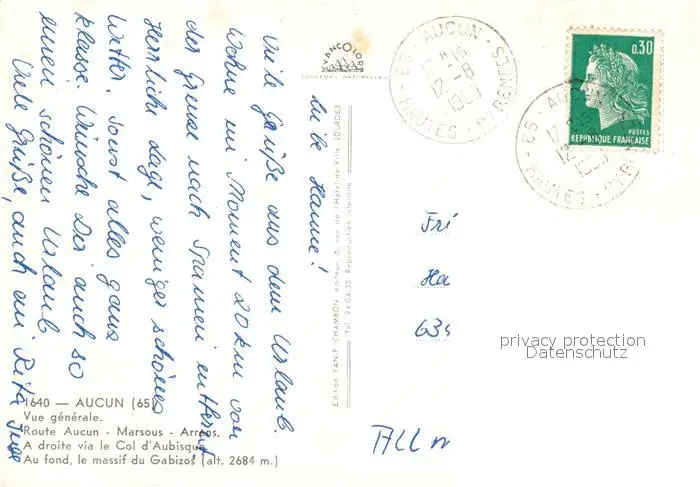 Liebe Hanne!
Viele Grüße aus dem Urlaub.
Wohne im Moment 20 km von
der Grenze nach Spanien entfernt
Herrliche Lage, weniger schönes
Wetter, sonst alles ganz
klasse. Wünsche Dir auch so
einen schönen Urlaub
Viele Grüße, auch an Rita
1640 — AUCUN (65)
Vue générale.
Route Aucun - Marsous - Arrens.
A droite via le Col d'Aubisque
Au fond, le massif du Gabizos (alt. 2684 m.)
COULEURS NATURELLES
Edition YAN, P. CHAMBON, éditeur, 6, rue de l'Hôtel de Ville, LOURDES
Tél. 94.04.35 Reproduction interdite
AUCUN
65 HAUTES-PYRÉNÉES
0,30
POSTES
REPUBLIQUE FRANÇAISE
AUCUN
65 HAUTES-PYR
Fri
Ha
634
privacy protection
Datenschutz